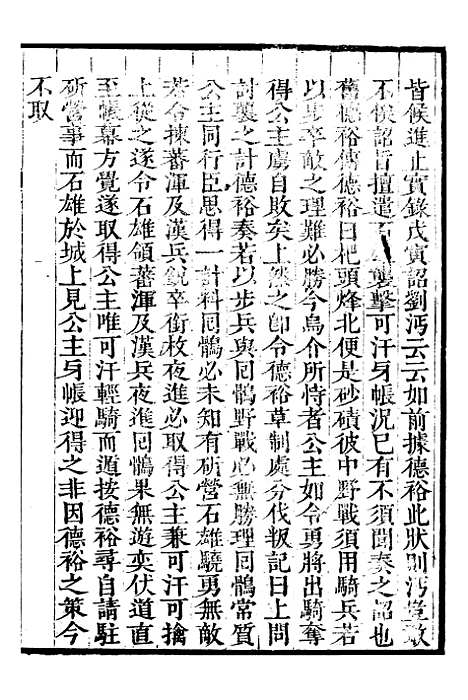 皆候進止實錄戊寅詔劉沔云云如前據德裕此狀則沔豈敢
不俟詔旨擅遣石雄襲擊可汗牙帳況已有不須聞奏之詔也
舊德裕傳德裕曰杷頭烽北便是砂磧彼中野戰須用騎兵若
以步卒敵之理難必勝今烏介所恃者公主如令勇將出騎奪
得公主虜自敗矣上然之卽令德裕草制處分伐叛記曰上問
討襲之計德裕奏若以步兵與囘鶻野戰必無勝理囘鶻常質
公主同行臣思得一計料囘鶻必未知有斫營石雄驍勇無敵
若令揀蕃渾及漢兵銳卒銜枚夜進必取得公主兼可汗可擒
上從之遂令石雄領蕃渾及漢兵夜進囘鶻果無遊奕伏道直
至帳幕方覺遂取得公主唯可汗輕騎而遁按德裕尋自請駐
斫營事而石雄於城上見公主牙帳迎得之非因德裕之策今
不取